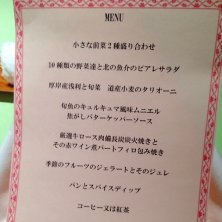 MENU
小さな前菜2種盛り合わせ
10種類の野菜達と北の魚介のピアレサラダ
厚岸産浅利と旬菜 道産小麦のタリオーニ
旬魚のキュルキュマ風味ムニエル
焦がしバターケッパーソース
厳選牛ロース肉備長炭炭火焼きと
その赤ワイン煮パートフィロ包み焼き
季節のフルーツのジェラートとそのジュレ
パンとスパイスディップ
コーヒー又は紅茶